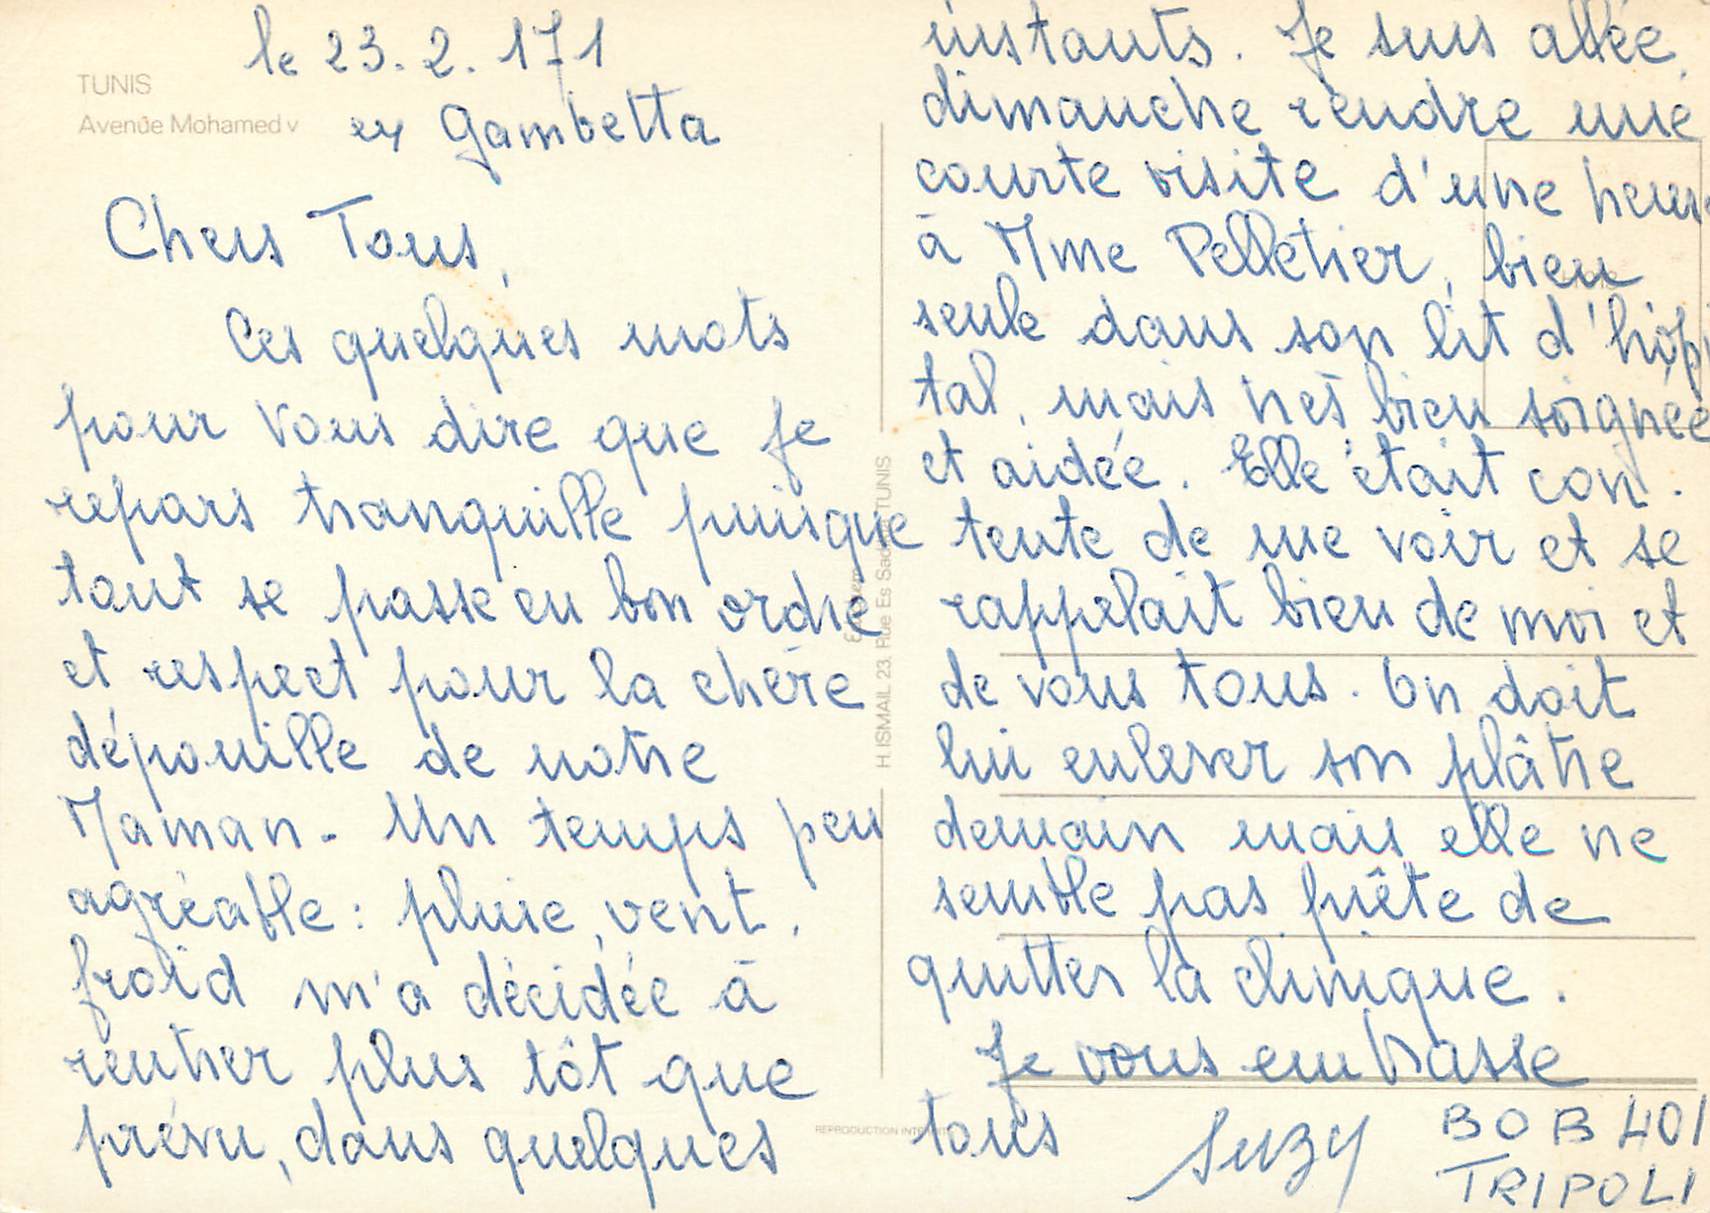 le 23.2.171
TUNIS
Avenue Mohamed v
ex Gambetta
Chers Tous,
Ces quelques mots
pour vous dire que je
repars tranquille puisque
tout se passe en bon ordre
et respect pour la chère
dépouille de notre
Maman. Un temps peu
agréable : pluie, vent,
froid m'a décidée à
rentrer plus tôt que
prévu, dans quelques
instants. Je suis allée,
dimanche rendre une
courte visite d'une heure
à Mme Pelletier, bien
seule dans son lit d'hôpi
tal, mais très bien soignée
et aidée. Elle était con.
tente de me voir et se
rappelait bien de moi et
de vous tous. On doit
lui enlever son plâtre
demain mais elle ne
semble pas prête de
quitter la clinique.
Je vous embrasse
tous
Suzy
BOB 401
TRIPOLI
H. ISMAIL 23, Rue Es TUNIS
REPRODUCTION